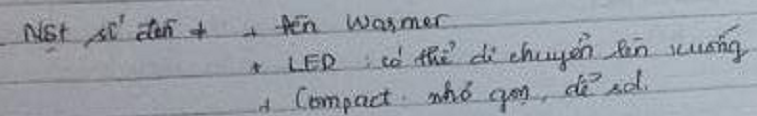 NSt số đến + + đèn Warmer
+ LED : có thể di chuyển lên xuống
+ Compact. nhỏ gọn, dễ sd.